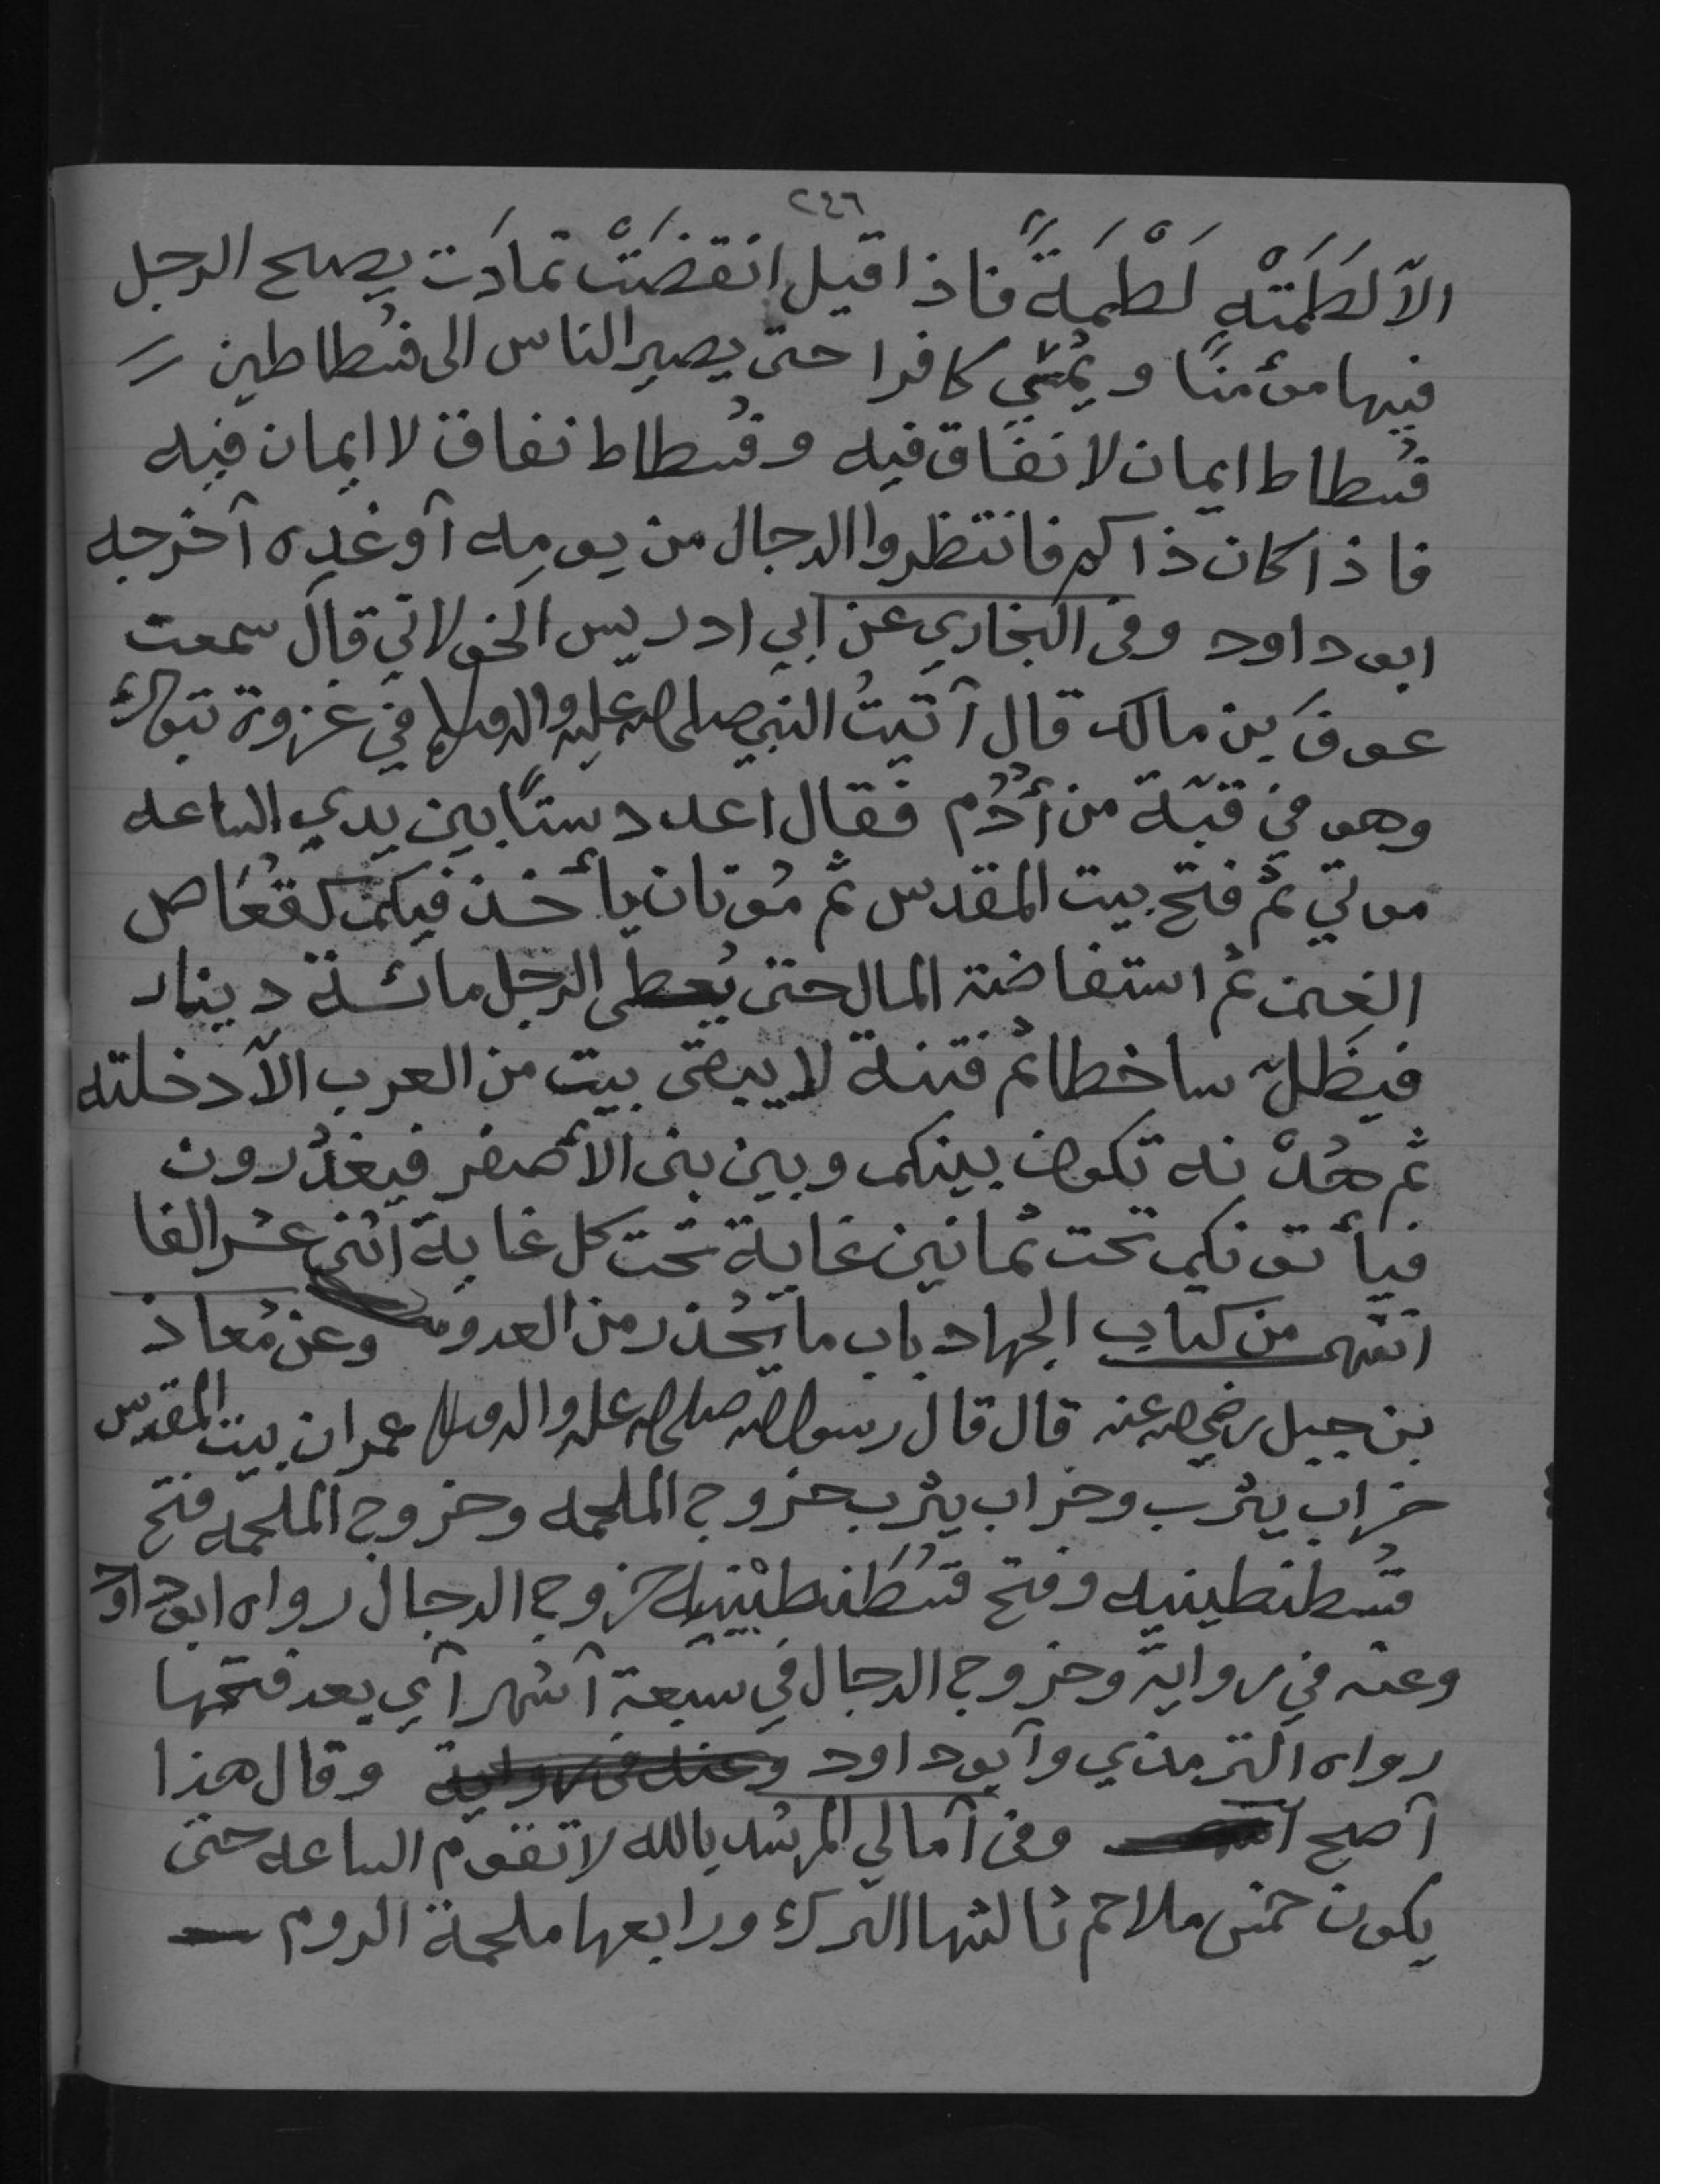 ٢٤٦
الاّ لَطَمَتْهِ لَطْمَةً فاذا قيل انقضَتْ تمادَت يصبح الرجل
فيها مؤمنًا ويُمسي كافرا حتى يصير الناس الى فسطاطين
فُسطاط ايمان لا نفاق فيه وفُسطاط نفاق لا ايمان فيه
فاذا كان ذاكم فانتظروا الدجال من يومِه أو غدِه أخرجه
ابوداود وفى البخاري عن ابي ادريس الخولاني قال سمعت
عوفَ بن مالك قال أتيتُ النبي صلى الله عليه واله وسلم في غزوة تبوك
وهو في قبّة من أُدُم فقال اعدد ستًّا بين يدي الساعه
موتي ثم فتح بيت المقدس ثم مُوتان يأخذ فيكم كقُعَاص
الغنم ثم استفاضة المال حتى يُعطى الرجل مائة دينار
فيظَلّ ساخطا ثم فتنة لا يبقى بيت من العرب الاّ دخلته
ثم هُدْنه تكون بينكم وبين بنى الأصفر فيغدُرون
فيأتونكم تحت ثمانين غاية تحت كل غاية اثنى عشر الفا
انتهى من كتاب الجهاد باب ما يُحذر من العدو وعن مُعاذ
بن جبل رضي الله عنه قال قال رسول الله صلى الله عليه واله وسلم عمران بيت المقدس
خراب يثرب وخراب يثرب خروج الملحمه وخروج الملحمه فتح
قُسطنطينيه وفتح قُسطَنطِيْنِيه خروج الدجال رواه ابوداود
وعنه في رواية وخروج الدجال في سبعة أشهر أي بعد فتحها
رواه الترمذي وأبوداود وعنه في رواية وقال هذا
أصح وفى أمالي المرشد بالله لا تقوم الساعه حتى
يكون خمس ملاحم ثالثها الترك ورابعها ملحمة الروم